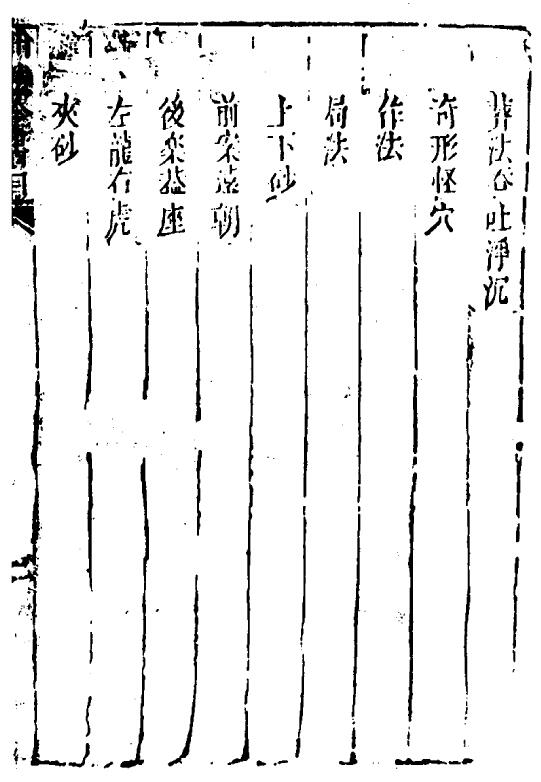 葬法吞吐浮沉
奇形怪穴
作法
局法
上下砂
前案遠朝
後樂葢座
左龍右虎
夾砂